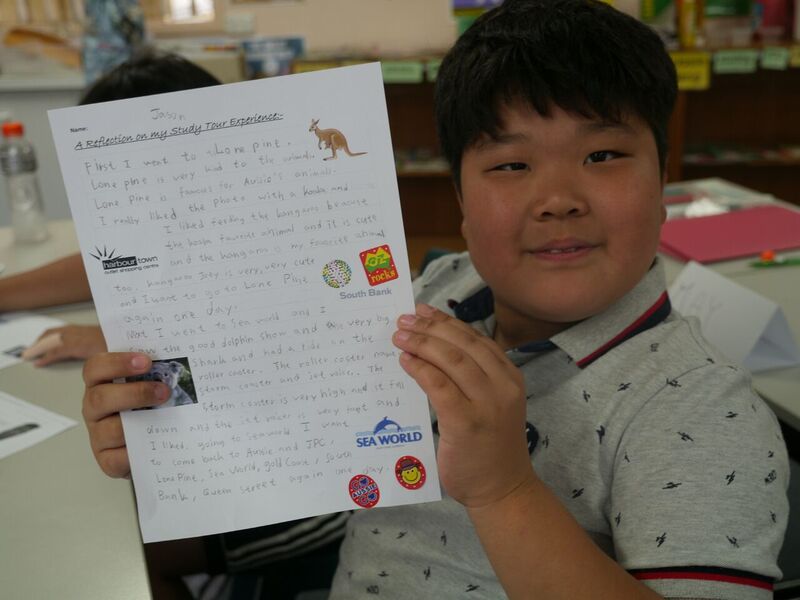 Name: Jason
A Reflection on my Study Tour Experience:-
First I went to Lone pine.
Lone pine is very had to the animal.
Lone Pine is famous for Aussie's animals.
I really liked the photo with a koala and
I liked feeding the kangaroo because
the koala favorite animal and it is cute
and the kangaroo is my favorite animal
too. kangaroo Joey is very, very cute
and I want to go to Lone Pine
again one day.
Next I went to Sea world and I
saw the good dolphin show and a very big
shark and had a ride in the
roller coaster. The roller coster name
storm coaster and Jet racer. The
storm coaster is very high and it fall
down and the jet racer is very fast and
I liked going to Seaworld. I want
to come back to Aussie and JPC,
Lone Pine, Sea World, gold Coast, South
Bank, Queen street again one day.
harbour town
outlet shopping centre
OZ
rocks
South Bank
SEA WORLD
AUSSIE